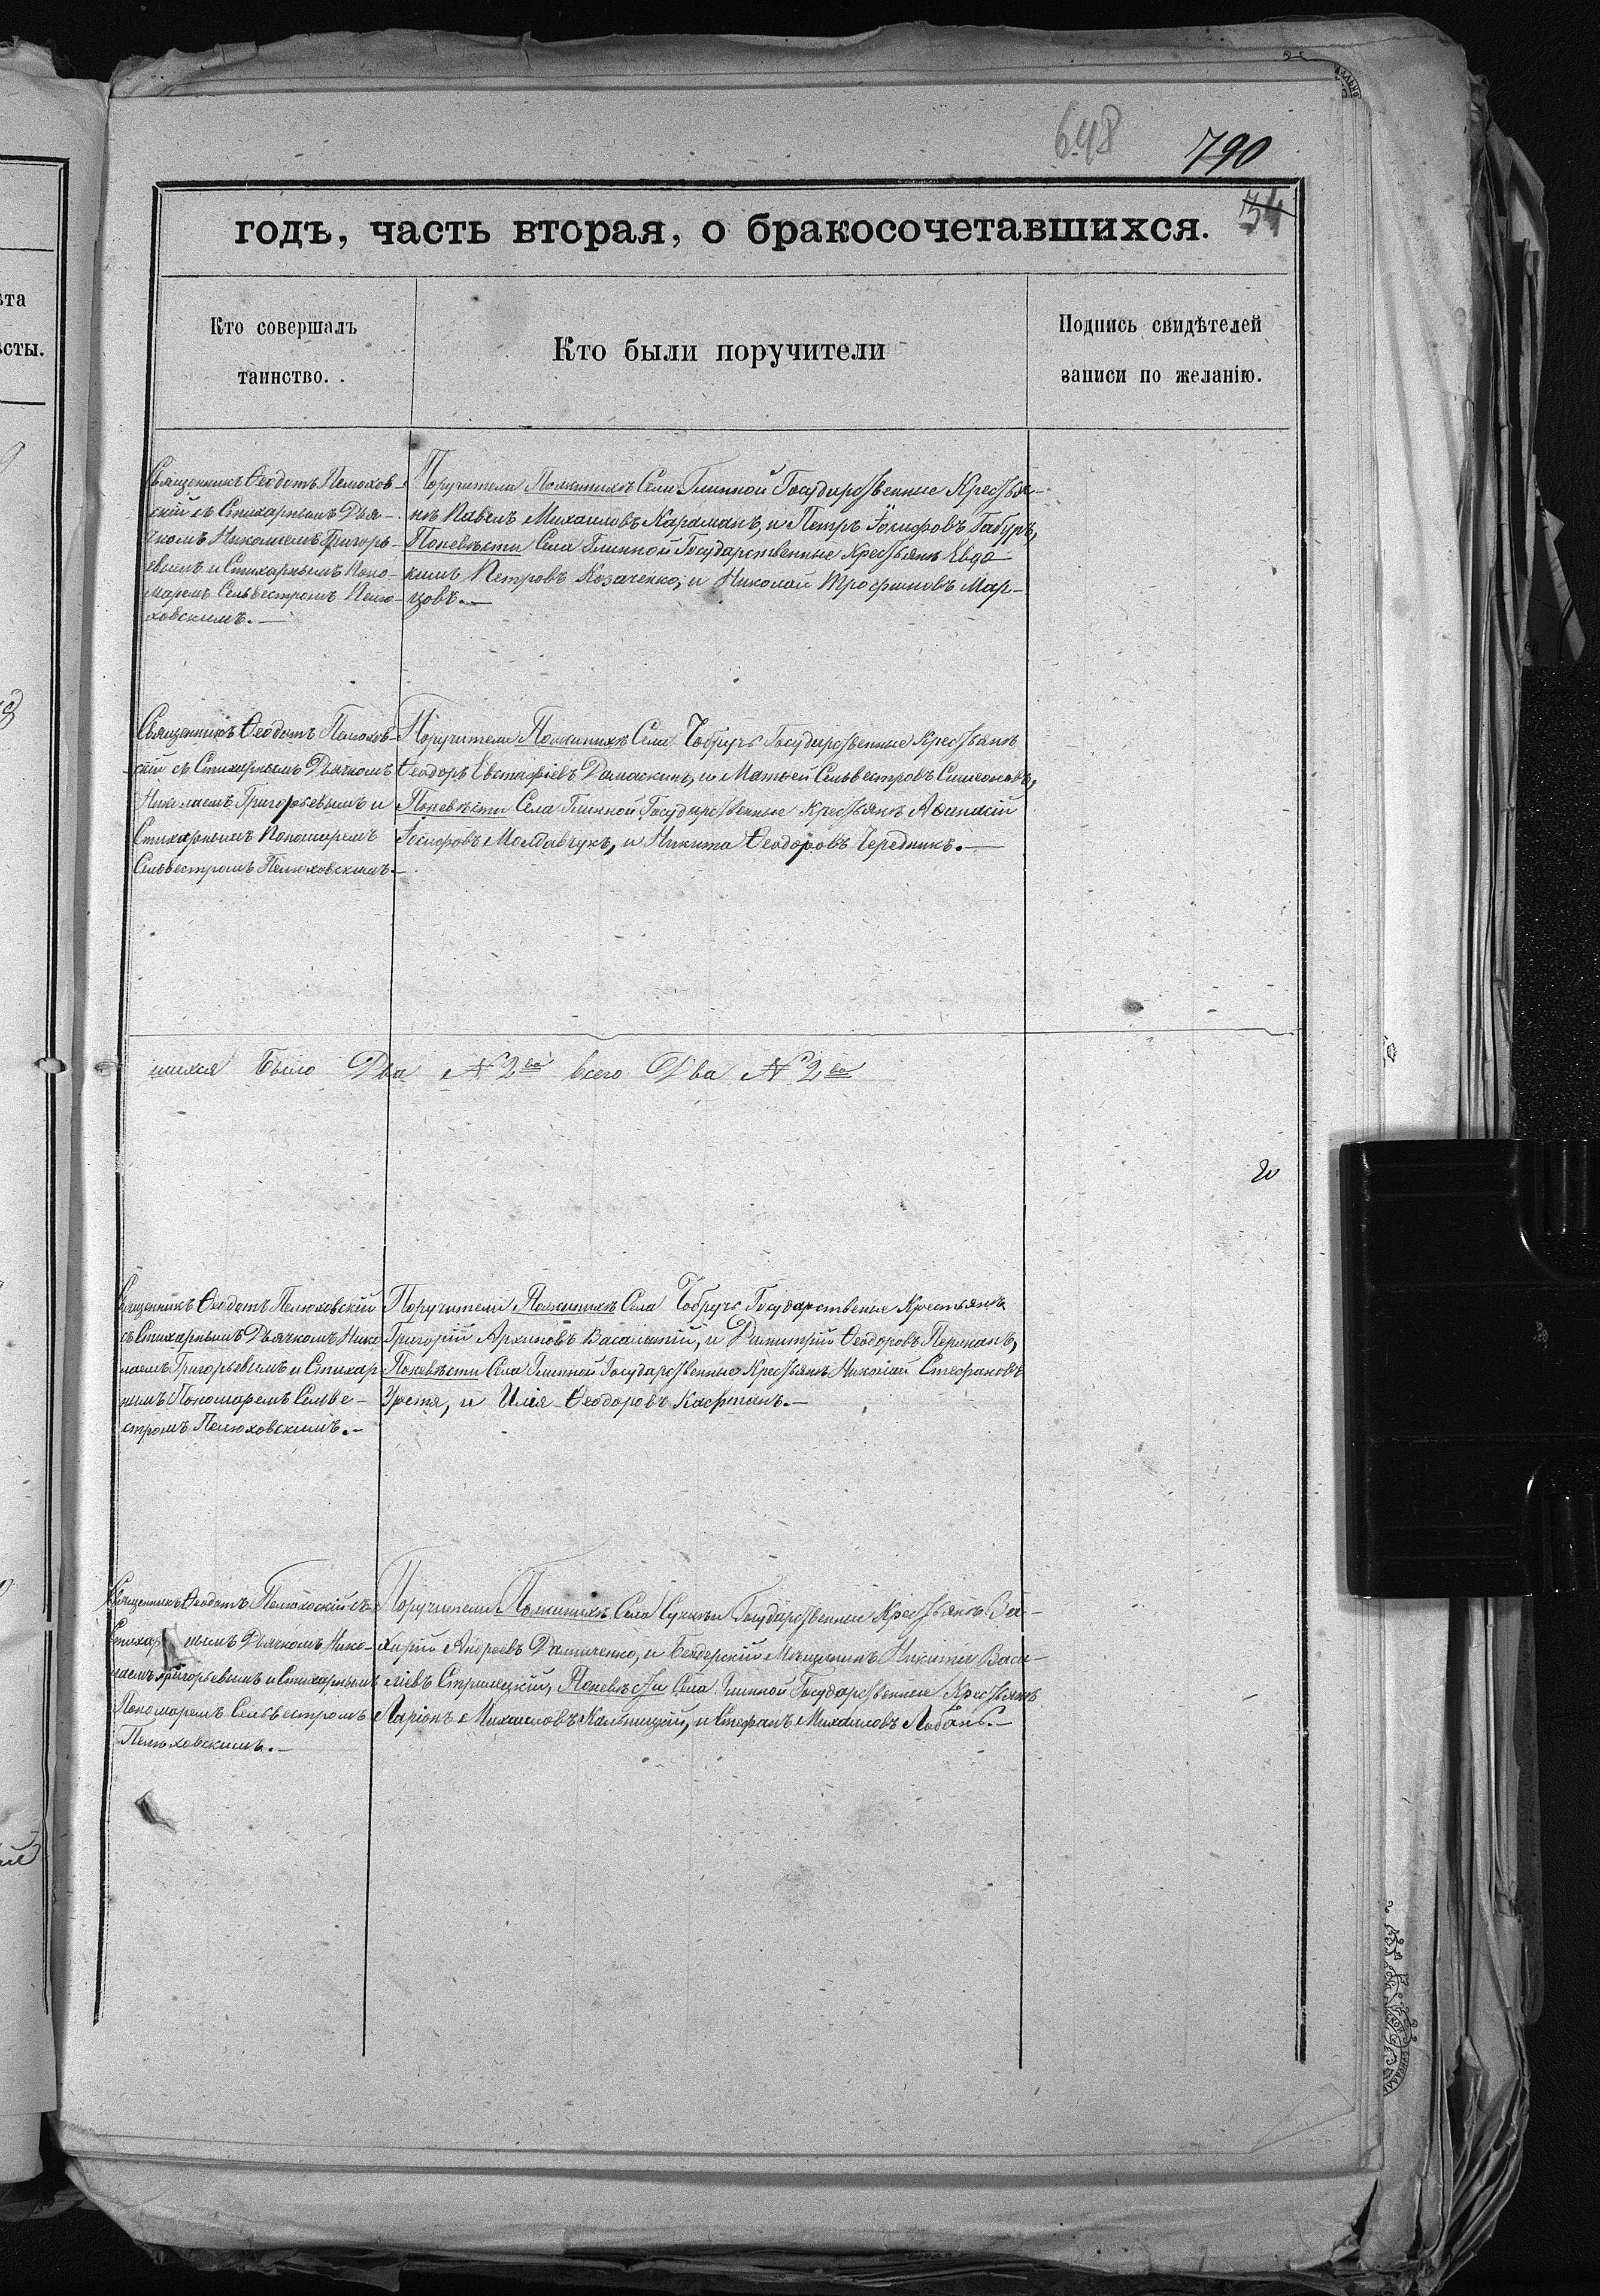 648
790
34
ѣта
ѣсты.
годъ, часть вторая, о бракосочетавшихся.
Кто совершалъ
таинство.
Кто были поручители
Подпись свидѣтелей
записи по желанію.
Священникъ Ѳеодотъ Пелюхов-
скій съ Стихарнымъ Дья-
чкомъ Николаемъ Григорь-
евымъ и Стихарнымъ Поно-
маремъ Сельвестромъ Пелю-
ховскимъ.—
Поручители Пожинихѣ Села Глинной Государственные Крестья-
нѣ Павелъ Михаиловъ Караманъ, и Петръ Іосифовъ Габуръ,
Поневѣсти Села Глинной Государственные Крестьянѣ Евдо-
кимъ Петровъ Козаченко, и Николай Трофимовъ Мар-
цовъ.—
Священникъ Ѳеодотъ Пелюхов-
скій съ Стихарнымъ Дьячкомъ
Николаемъ Григорьевымъ и
Стихарнымъ Пономаремъ
Сельвестромъ Пелюховскимъ.—
Поручители Пожинихѣ Села Чобручъ Государственные Крестьянѣ
Ѳеодоръ Евстафіевъ Дамаскинъ, и Матѳей Сельвестровъ Симеоновъ,
Поневѣсти Села Глинной Государственные Крестьянѣ Аѳанасій
Іосифовъ Молдавчукъ, и Никита Ѳеодоровъ Чередникъ.—
шихся было Два № 2ва всего Два № 2ва
Священникъ Ѳеодотъ Пелюховскій
съ Стихарнымъ Дьячкомъ Нико-
лаемъ Григорьевымъ и Стихар-
нымъ Пономаремъ Сельве-
стромъ Пелюховскимъ.—
Поручители Пожинихѣ Села Чобручъ Государственые Крестьянѣ
Григорій Архиповъ Васалатій, и Димитрій Ѳеодоровъ Пержанъ,
Поневѣсти Села Глинной Государственные Крестьянѣ Николай Стефановъ
и Илія Ѳеодоровъ Кафтанъ.—
Священникъ Ѳеодотъ Пелюховскій съ
Стихарнымъ Дьячкомъ Нико-
лаемъ Григорьевымъ и Стихарнымъ
Пономаремъ Сельвестромъ
Пелюховскимъ.—
Поручители Пожинихѣ Села Суклеи Государственные Крестьянѣ За-
харій Андреевъ и Бендерскій Мещанинъ Никита Васи-
ліевъ Стрилецкій, Поневѣсти Села Глинной Государственные Крестьянѣ
Ларіонъ Михаиловъ Кальницкій, и Стефанъ Михаиловъ Лобанъ.—